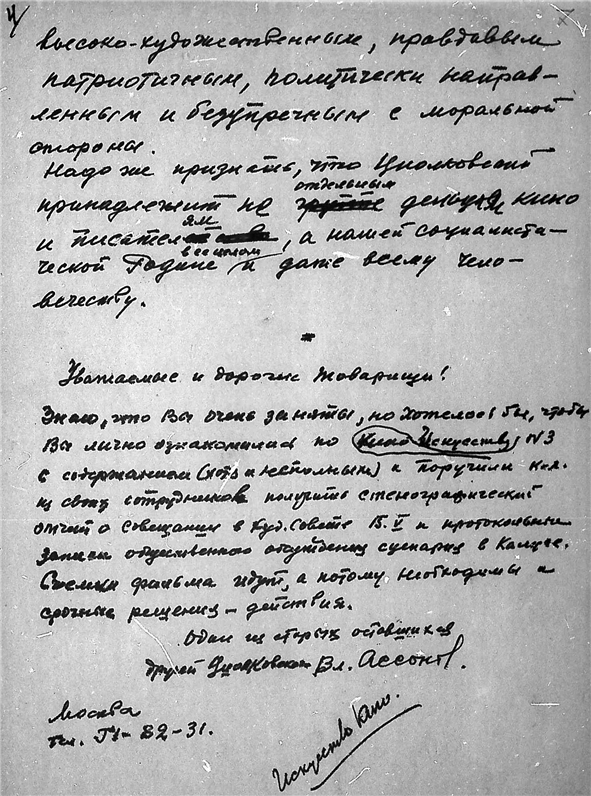 4
высоко-художественным, правдавым
патриотичным, политически направ-
ленным и безупречным с моральной
стороны.
Надо же признать, что Циолковский
отдельным
принадлежит не группе деятелям кино
ям
и писател, а нашей социалисти-
всецелом
ческой Родине и даже всему чело-
вечеству.
Уважаемые и дорогие товарищи!
Знаю, что Вы очень заняты, но хотелось бы, чтобы
Вы лично ознакомились по Кино Искусству №3
с содержанием (хотя и неполным) и поручили к-л.
из своих сотрудников получить стенографический
отчет о совещании в Худ. Совете 15.V и протокольные
записи общественного обсуждения сценария в Калуге.
Съемки фильма идут, а потому необходимы и
срочные решения – действия.
Один из старых оставшихся
друзей Циолковского Вл. Ассонов.
Москва
тел. Г1-82-31.
Искусство Кино.